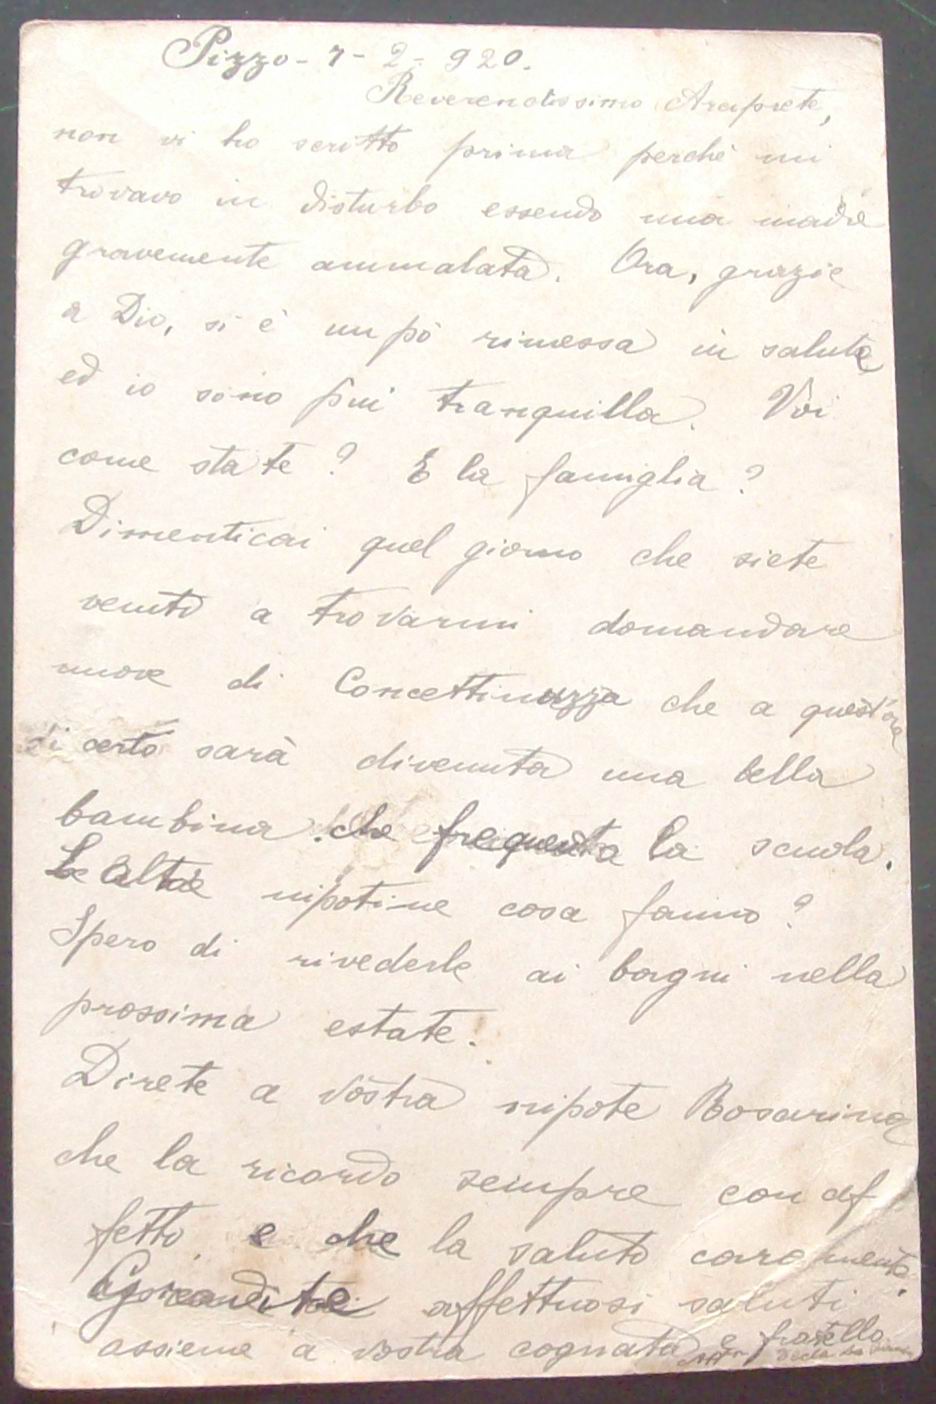 Pizzo - 7 - 2 - 920.
Reverendissimo Arciprete,
non vi ho scritto prima perchè mi
trovavo in disturbo essendo mia madre
gravemente ammalata. Ora, grazie
a Dio, si è un pò rimessa in salute
ed io sono più tranquilla. Voi
come state? E la famiglia?
Dimenticai quel giorno che siete
venuto a trovarmi domandare
nuove di Concettinuzza che a quest'ora
di certo sarà divenuta una bella
bambina che frequenta la scuola.
Le altre nipotine cosa fanno?
Spero di rivederle ai bagni nella
prossima estate.
Direte a vostra nipote Rosarina
che la ricordo sempre con af
fetto e che la saluto caramente.
Gradite affettuosi saluti
assieme a vostra cognata e fratello.